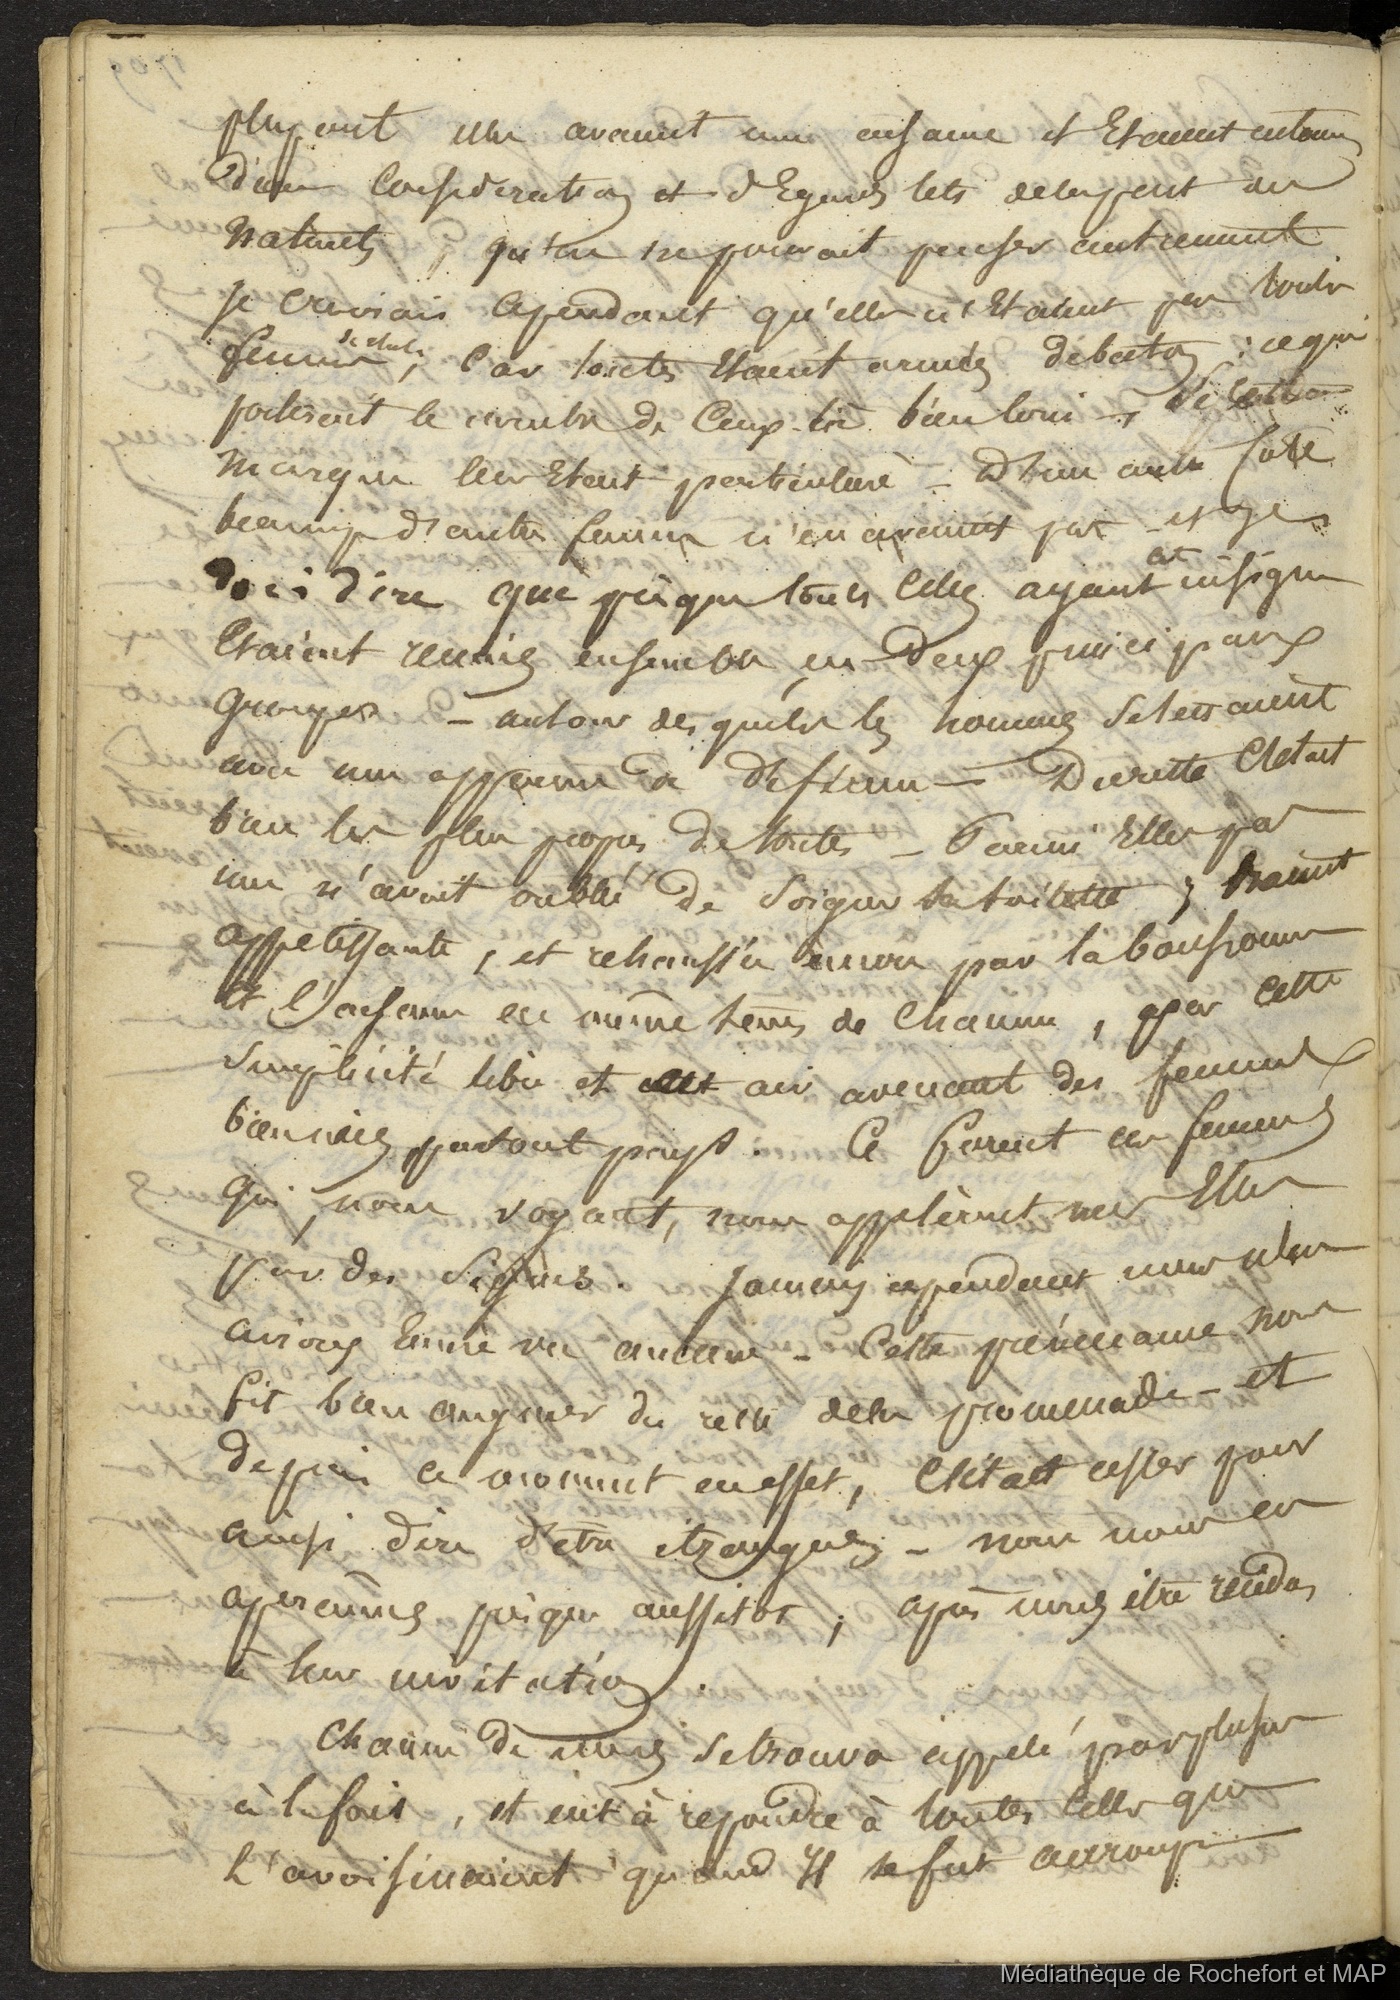 plupart elles avaient une aisance et Etaient entourées
d'une Consideration et d'Egards tels dela part des
Naturels, qu'on ne pouvait penser autrement
je croirais Cependant qu'elles n'Etaient pas toutes
femmes de chefs, Car toutes Etaient armées de baton : ce qui
porterait le nombre de Ceux-là bien loin - Si cette
marque leur Etait particulière - D'un autre Coté
beaucoup d'autres femmes n'en avaient pas - et je
dois dire que presque toutes Celles ayant cet insigne
Etaient reunies ensemble en deux principaux
Groupes - autour desquels les hommes se tenaient
avec une apparence de deference - Du reste C'était
bien les plus propres de toutes - Parmi Elles pas
une n'avait oublié de Soigner sa toilette ;
appetissante, et rehaussée encore par la
et l'aisance en même tems de Chacune, par cette
Simplicité libre et cet air avenant des femmes
bien nées partout pays. Ce furent ces femmes
qui, nous voyant, nous appelèrent vers Elles
par des Signes. Jamais cependant nous n'en
avions Encore vu aucune - Cette prévenance nous
fit bien augurer du reste dela promenade - et
depuis ce moment en effet, C'était cesser pour
ainsi dire d'être étrangers - nous nous en
aperçûmes presque aussitot, après nous être rendus
à leur invitation.
Chacun de nous Se trouva appelé par plusieurs
à la fois, et eut à repondre à toutes Celles qui
L'avoisinaient quand Il se fut accroupi
Médiathèque de Rochefort et MAP